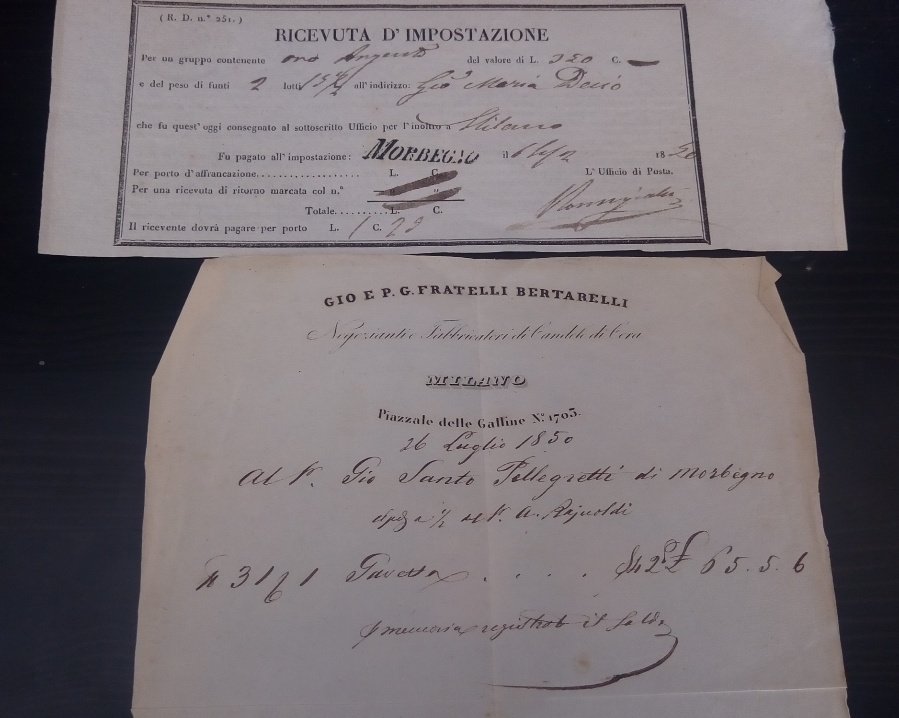 ( R. D. n.° 251. )
RICEVUTA D' IMPOSTAZIONE
Per un gruppo contenente oro Argento del valore di L. 320 C. —
e del peso di funti 2 lotti all' indirizzo: Gio Maria Decio
che fu quest' oggi consegnato al sottoscritto Ufficio per l' inoltro a Milano
Fu pagato all' impostazione: MORBEGNO il 6 18 50
Per porto d' affrancazione.................. L. C.
L' Ufficio di Posta.
Per una ricevuta di ritorno marcata col n.°
Totale.........L. C.
Il ricevente dovrà pagare per porto L. 1 C. 23
GIO E P. G. FRATELLI BERTARELLI
Negozianti e Fabbricatori di Candele di Cera
MILANO
Piazzale delle Galline N.° 1703.
26 Luglio 1850
Al Gio Santo Pellegretti di Morbegno
a 1/2 A. Rajnoldi
31 1 . . . . 42 £ 65. 5. 6
memoria registrato il Saldo